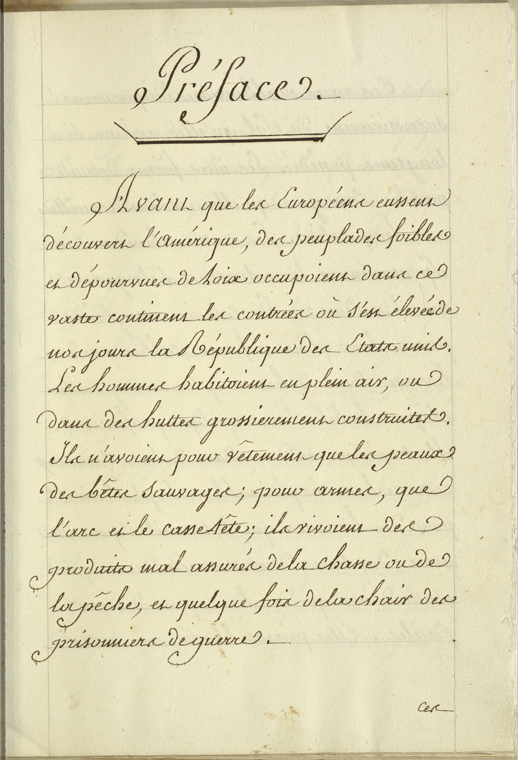 Préface.
Avant que les Européens eussent
découvert l'Amérique, des peuplades foibles
et dépourvues de Loix occupoient dans ce
vaste continent les contrées où s'est élevée de
nos jours la République des Etats unis.
Les hommes habitoient en plein air, ou
dans des huttes grossierement construites.
Ils n'avoient pour vêtement que les peaux
des bêtes sauvages; pour armes, que
l'arc et le casse tête; ils vivoient des
produits mal assurés de la chasse ou de
la pêche, et quelque fois de la chair des
prisonniers de guerre.
Ces